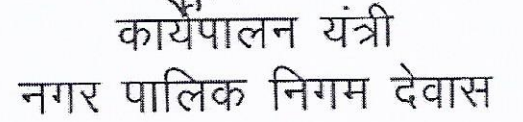 कार्यपालन यंत्री
नगर पालिक निगम देवास